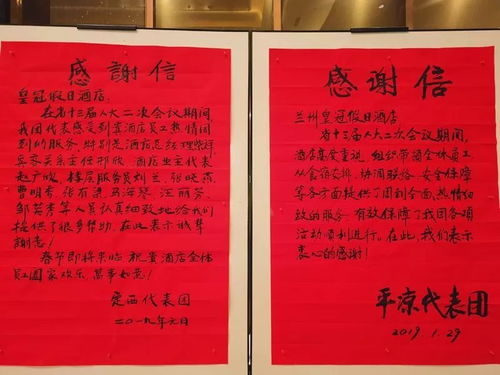 感謝信
皇冠假日酒店:
在省十三届人大二次会议期间,
我团代表感受到贵酒店员工热情周
到的服务,特别是酒店总经理柴峰
宾客关系主任邢欣 酒店业主代表
赵广欣,楼层服务员刘兰 张晓燕
曹明秀 张有
马海琴 汪丽芳、
邹英秀等人员认真细致地给我们
提供了很多帮助,在此表示诚挚
謝意!
春节即将来临 祝贵酒店全体
员工阖家欢乐,萬事如意!
定西代表团
二〇一九年元日
感谢信
兰州皇冠假日酒店
省十三届人大二次会议期间,
酒店高度重视,组织带领全体员工,
从食宿安排、协调联络、安全保障
等各方面提供了周到全面、热情细
致的服务,有效保障了我团各项
活动顺利进行。在此,我们表示
衷心的感谢!
平凉代表团
2019.1.29